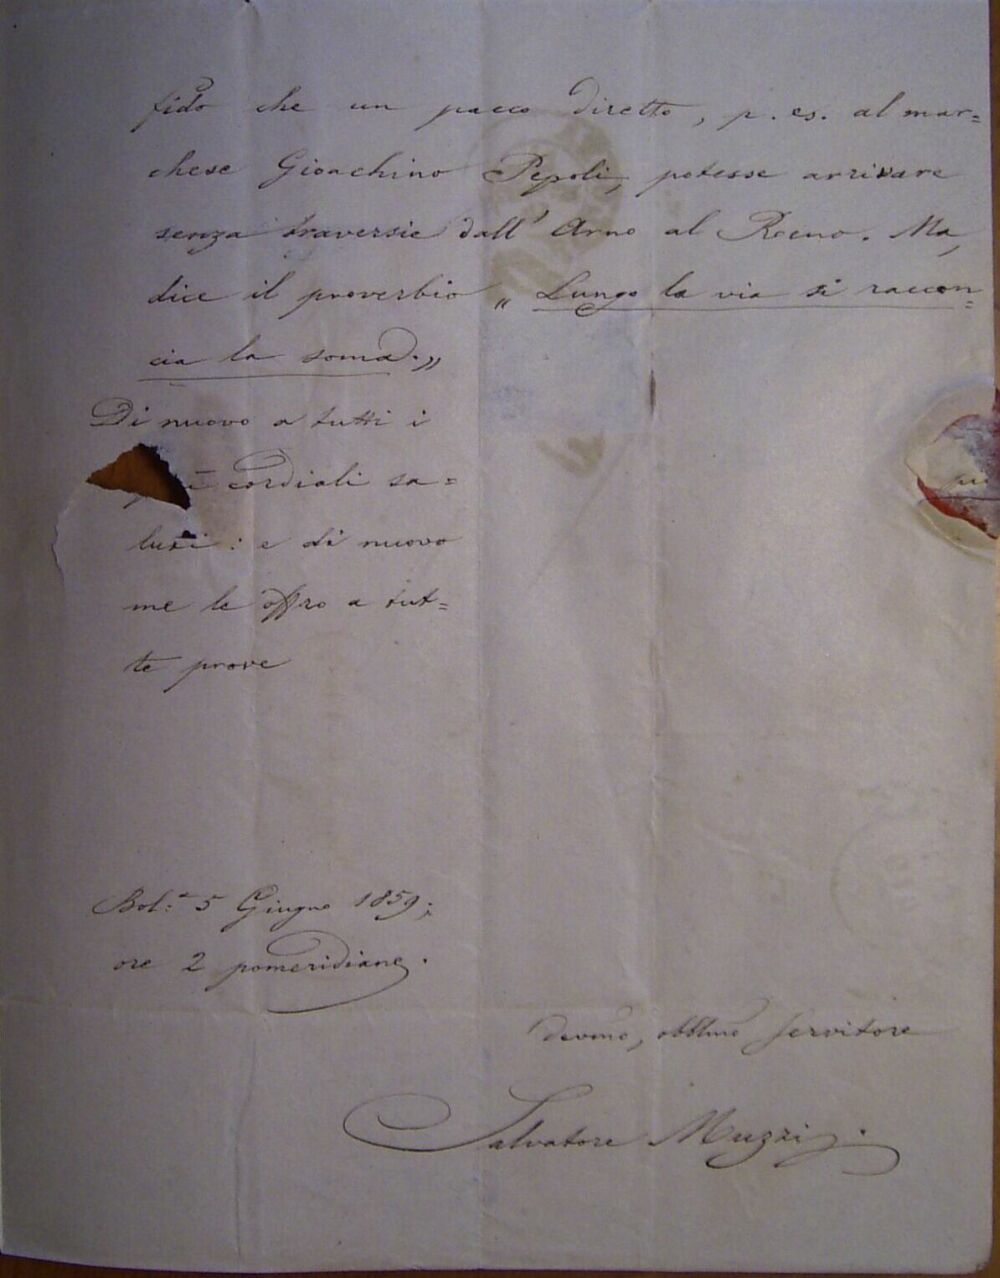 fido che un pacco diretto, p. es. al mar=
chese Gioachino Pepoli, potesse arrivare
senza traversie dall' Arno al Reno. Ma,
dice il proverbio „ Lungo la via si raccon=
cia la soma. „
Di nuovo a tutti i
cordiali sa=
luti: e di nuovo
me le offro a tut=
te prove
Bol:ª 5 Giugno 1859;
ore 2 pomeridiane.
devmo, obblmo servitore
Salvatore Muzzi.